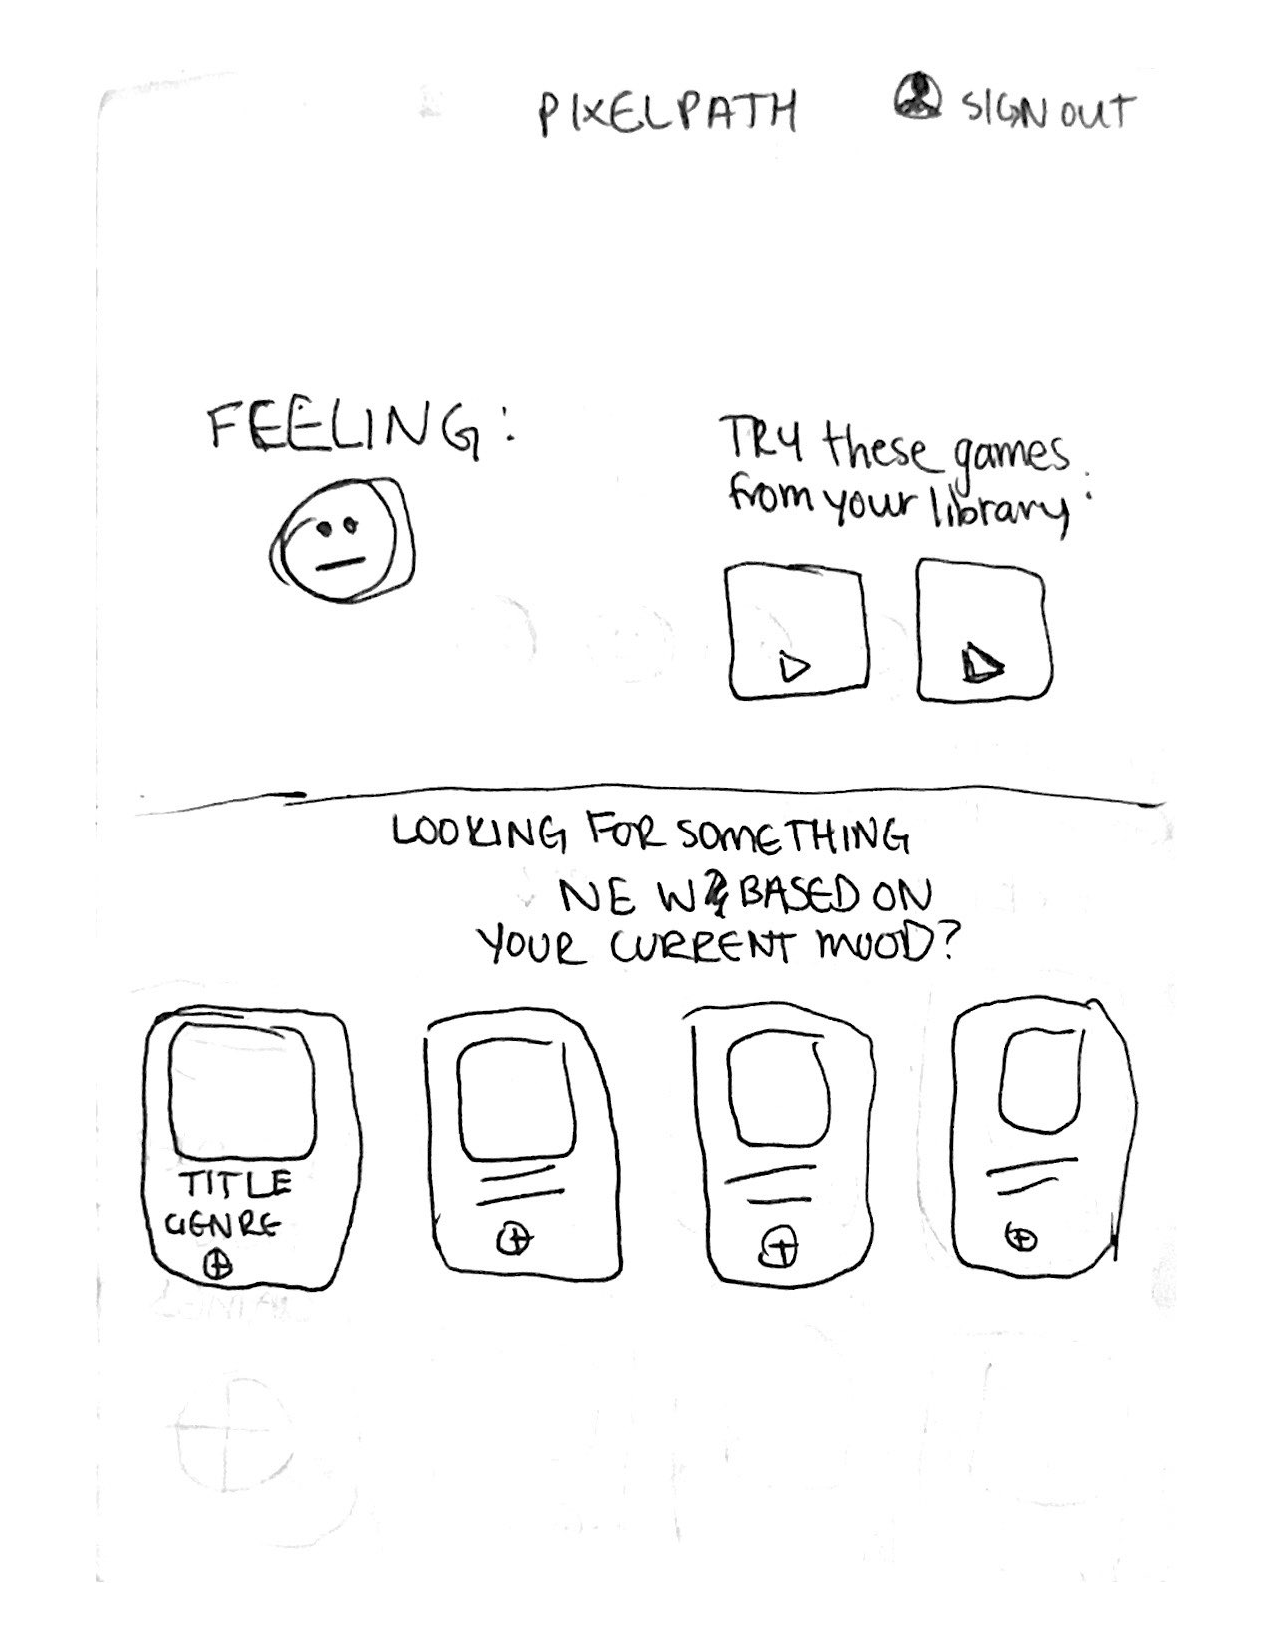 PIXELPATH SIGN OUT
FEELING:
TRY these games
from your library:
LOOKING FOR SOMETHING
NEW BASED ON
YOUR CURRENT MOOD?
TITLE
GENRE